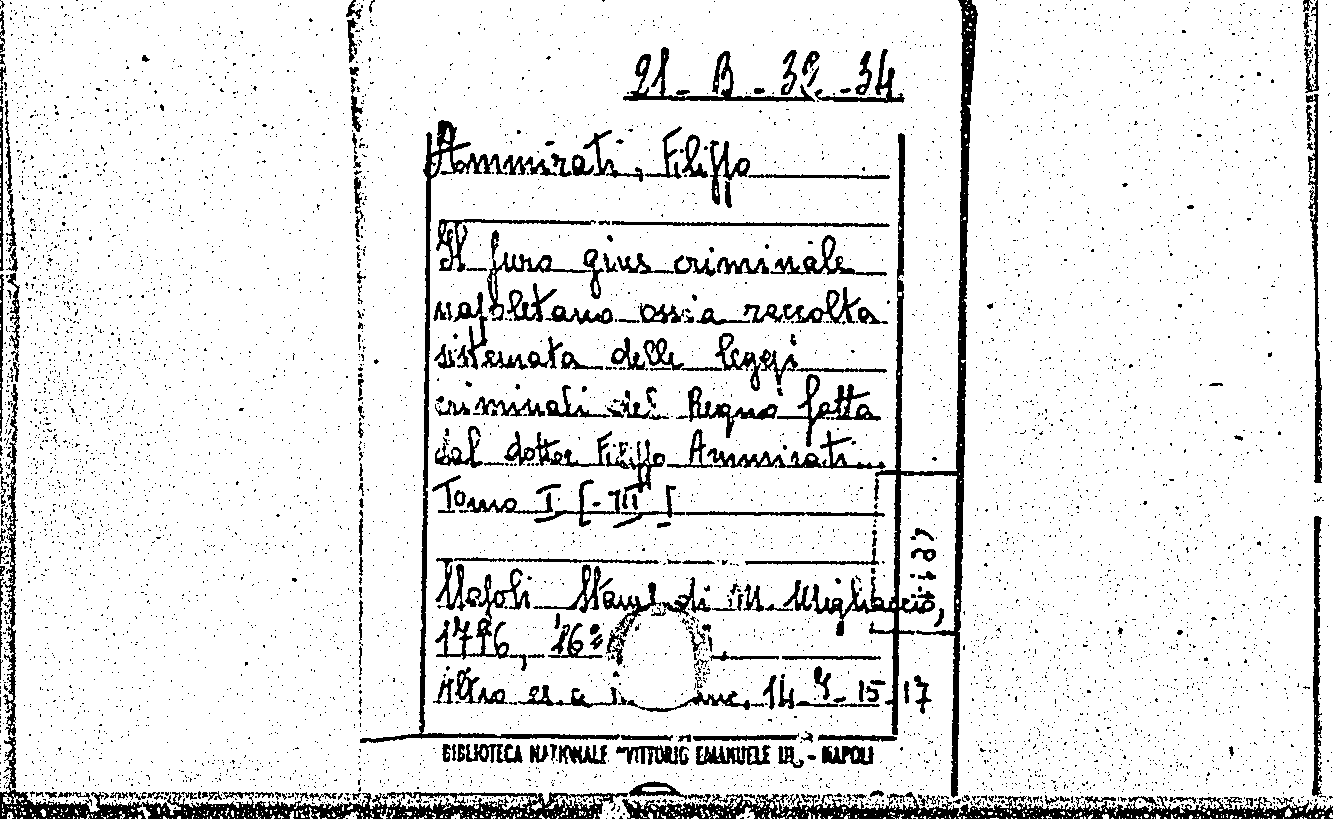 21 - B - 32 - 34
Ammirati, Filippo
Il juro gius criminale
napoletano ossia raccolta
sistemata delle leggi
criminali del Regno fatta
dal dottor Filippo Ammirati...
Tomo I [-III]
Napoli Stamp. di M. Migliaccio,
16º
Altro es. a 14 - 15 - 17
BIBLIOTECA NAZIONALE "VITTORIO EMANUELE III, - NAPOLI